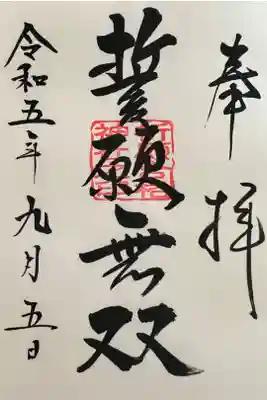 奉拝
誓願無双
令和五年九月五日